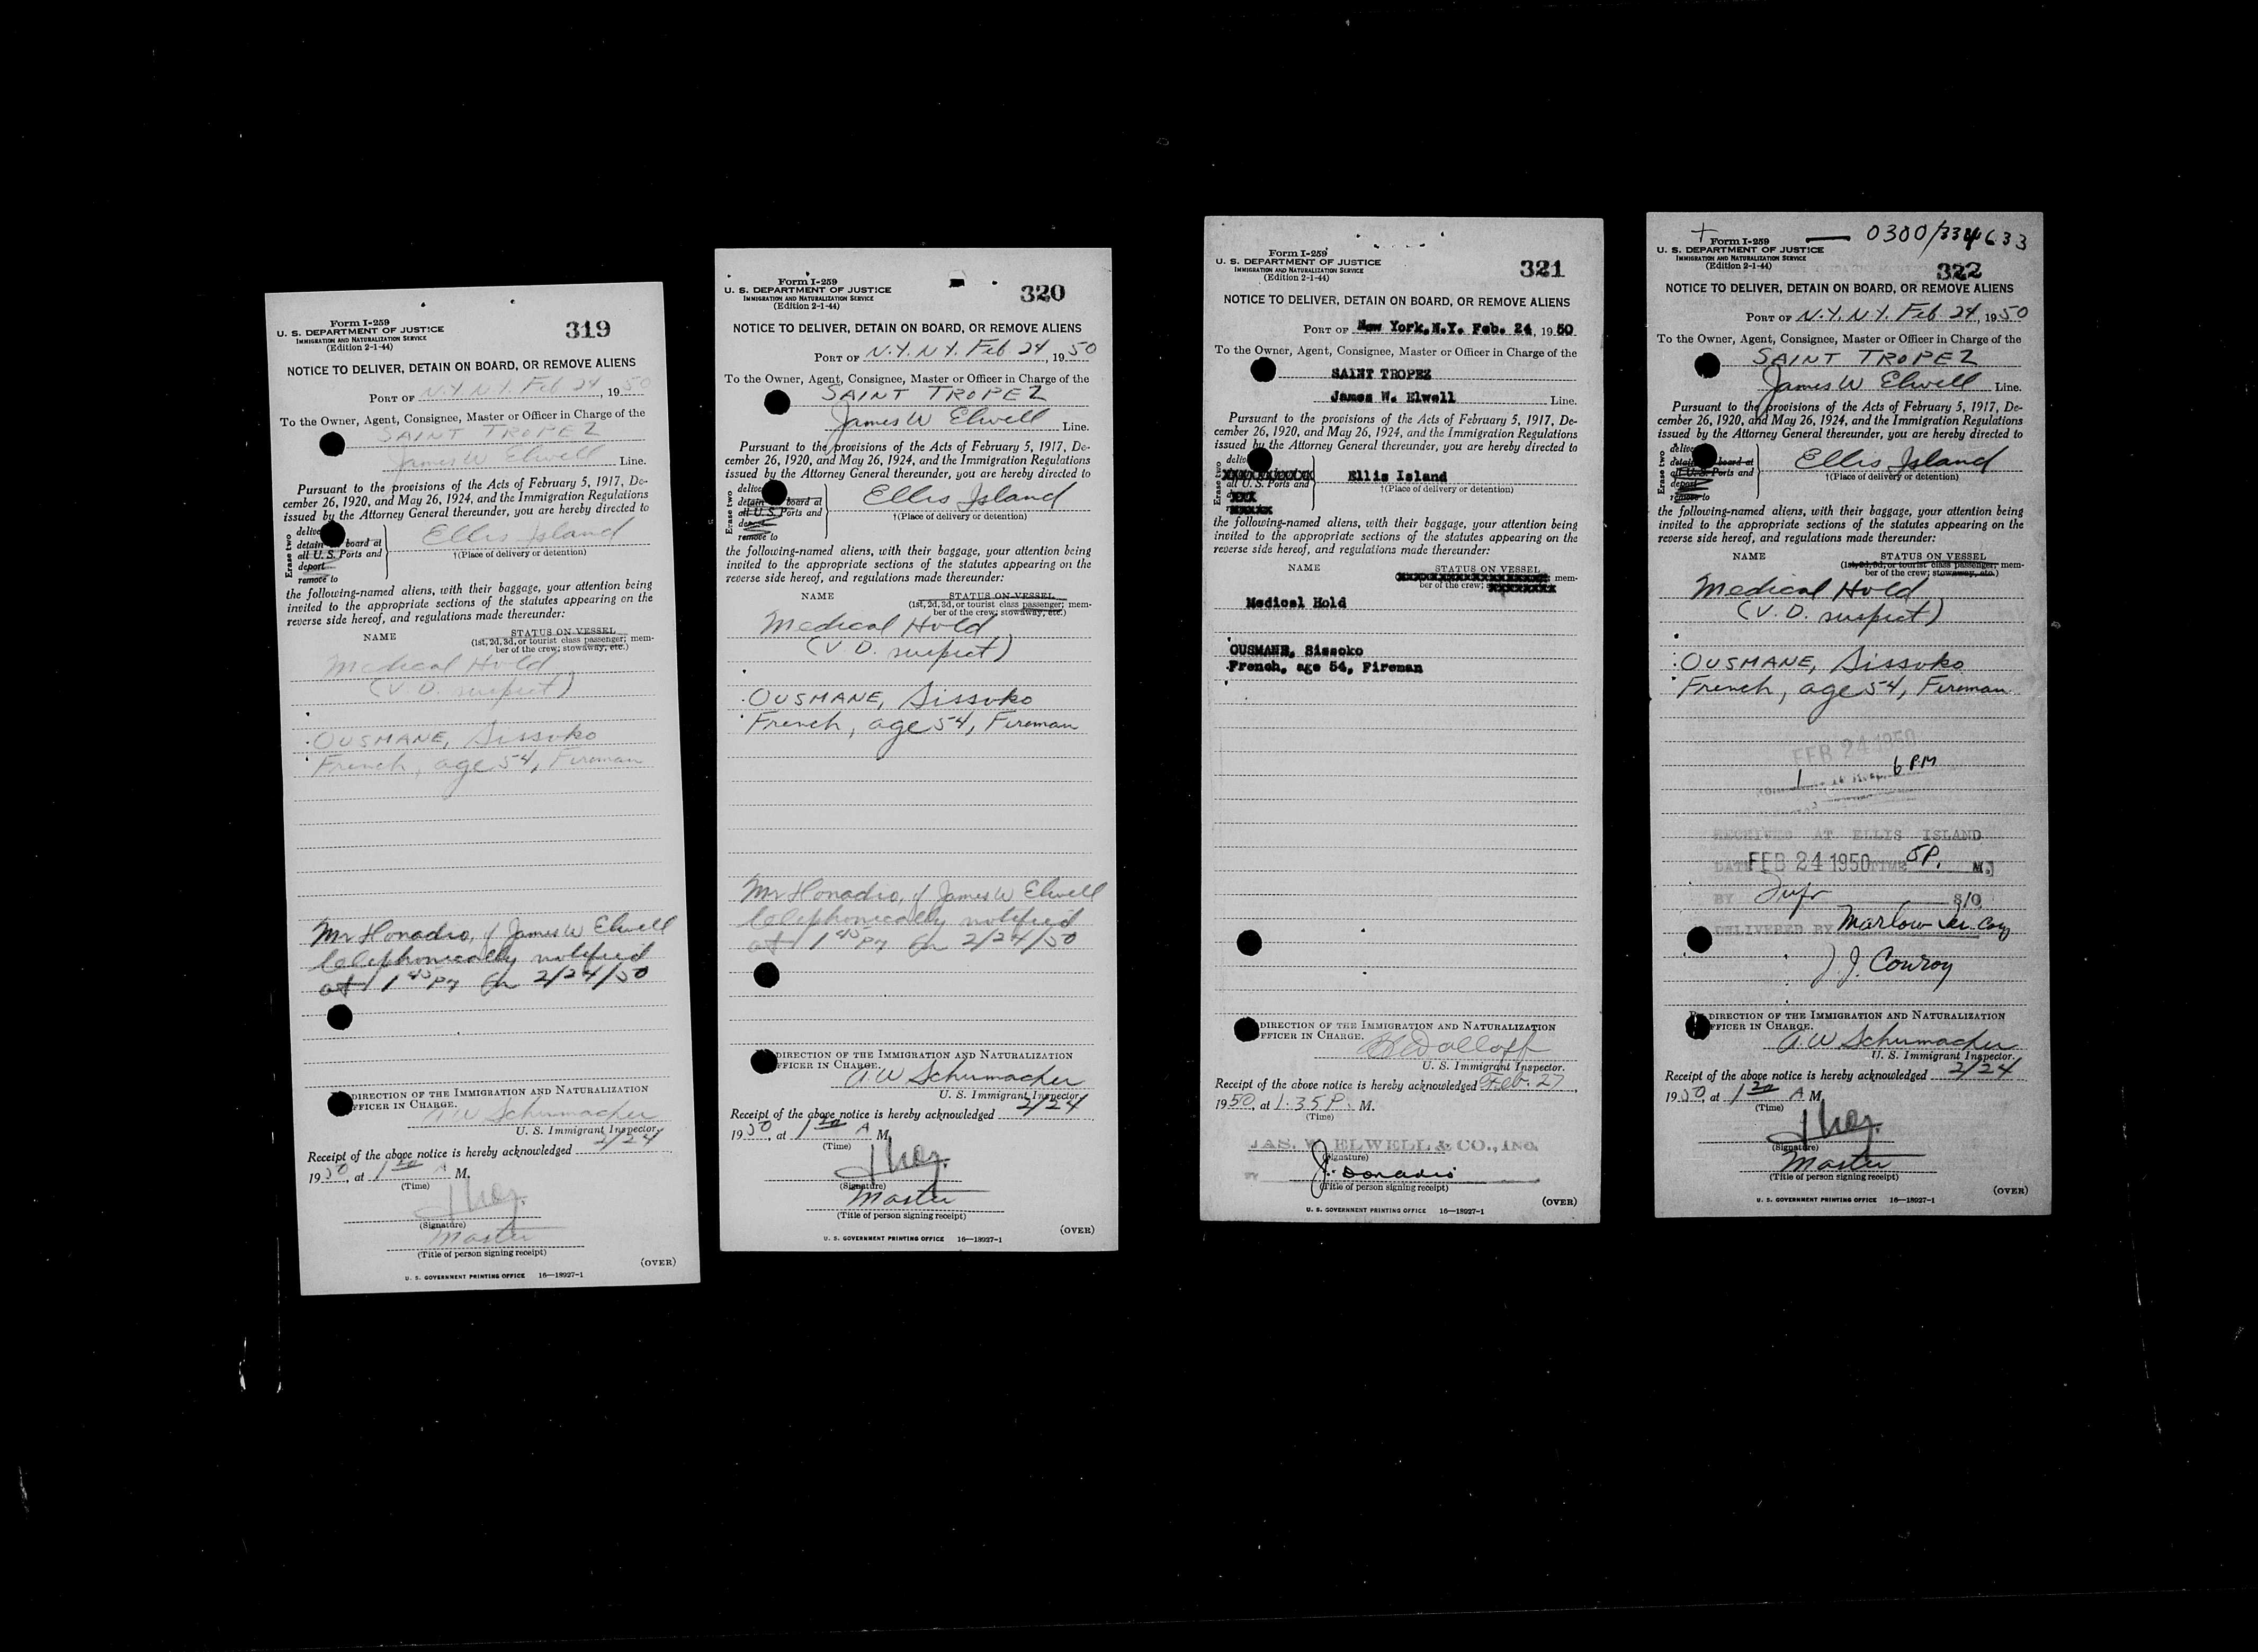 Form I-259
U. S. DEPARTMENT OF JUSTICE
IMMIGRATION AND NATURALIZATION SERVICE
(Edition 2-1-44)
319
NOTICE TO DELIVER, DETAIN ON BOARD, OR REMOVE ALIENS
PORT OF N.Y. N.Y. Feb 24, 1950
To the Owner, Agent, Consignee, Master or Officer in Charge of the
SAINT TROPEZ
James W Elwell Line.
Pursuant to the provisions of the Acts of February 5, 1917, De-
cember 26, 1920, and May 26, 1924, and the Immigration Regulations
issued by the Attorney General thereunder, you are hereby directed to
Erase two
detain board at
all U. S. Ports and
deport
remove to
Ellis Island
†(Place of delivery or detention)
the following-named aliens, with their baggage, your attention being
invited to the appropriate sections of the statutes appearing on the
reverse side hereof, and regulations made thereunder:
NAME STATUS ON VESSEL
(1st, 2d, 3d, or tourist class passenger; mem-
ber of the crew; stowaway, etc.)
Medical Hold
(V.D. suspect)
OUSMANE, Sissoko
French, age 54, Fireman
Mr Honadio, of James W Elwell
telephonically notified
at 1 45 PM on 2/24/50
DIRECTION OF THE IMMIGRATION AND NATURALIZATION
OFFICER IN CHARGE.
A W Schumacher
U. S. Immigrant Inspector.
Receipt of the above notice is hereby acknowledged 2/24
1950, at 1 20 A M.
(Time)
(Signature)
Master
(Title of person signing receipt)
(OVER)
U. S. GOVERNMENT PRINTING OFFICE 16—18927-1
Form I-259
U. S. DEPARTMENT OF JUSTICE
IMMIGRATION AND NATURALIZATION SERVICE
(Edition 2-1-44)
320
NOTICE TO DELIVER, DETAIN ON BOARD, OR REMOVE ALIENS
PORT OF N.Y. N.Y. Feb 24, 1950
To the Owner, Agent, Consignee, Master or Officer in Charge of the
SAINT TROPEZ
James W Elwell Line.
Pursuant to the provisions of the Acts of February 5, 1917, De-
cember 26, 1920, and May 26, 1924, and the Immigration Regulations
issued by the Attorney General thereunder, you are hereby directed to
Erase two
detain board at
all U. S. Ports and
deport
remove to
Ellis Island
†(Place of delivery or detention)
the following-named aliens, with their baggage, your attention being
invited to the appropriate sections of the statutes appearing on the
reverse side hereof, and regulations made thereunder:
NAME STATUS ON VESSEL
(1st, 2d, 3d, or tourist class passenger; mem-
ber of the crew; stowaway, etc.)
Medical Hold
(V.D. suspect)
OUSMANE, Sissoko
French, age 54, Fireman
Mr Honadio, of James W Elwell
telephonically notified
at 1 45 PM on 2/24/50
DIRECTION OF THE IMMIGRATION AND NATURALIZATION
OFFICER IN CHARGE.
A W Schumacher
U. S. Immigrant Inspector.
Receipt of the above notice is hereby acknowledged 2/24
1950, at 1 20 A M.
(Time)
(Signature)
Master
(Title of person signing receipt)
(OVER)
U. S. GOVERNMENT PRINTING OFFICE 16—18927-1
Form I-259
U. S. DEPARTMENT OF JUSTICE
IMMIGRATION AND NATURALIZATION SERVICE
(Edition 2-1-44)
321
NOTICE TO DELIVER, DETAIN ON BOARD, OR REMOVE ALIENS
PORT OF New York, N.Y. Feb. 24, 1950
To the Owner, Agent, Consignee, Master or Officer in Charge of the
SAINT TROPEZ
James W. Elwell Line.
Pursuant to the provisions of the Acts of February 5, 1917, De-
cember 26, 1920, and May 26, 1924, and the Immigration Regulations
issued by the Attorney General thereunder, you are hereby directed to
Erase two
all U. S. Ports and
Ellis Island
†(Place of delivery or detention)
the following-named aliens, with their baggage, your attention being
invited to the appropriate sections of the statutes appearing on the
reverse side hereof, and regulations made thereunder:
NAME STATUS ON VESSEL
mem-
ber of the crew;
Medical Hold
OUSMANE, Sissoko
French, age 54, Fireman
DIRECTION OF THE IMMIGRATION AND NATURALIZATION
OFFICER IN CHARGE.
U. S. Immigrant Inspector.
Receipt of the above notice is hereby acknowledged Feb. 27,
1950, at 1.35 P. M.
(Time)
JAS. W. ELWELL & CO., INC.
(Signature)
BY J. Donadio
(Title of person signing receipt)
(OVER)
U. S. GOVERNMENT PRINTING OFFICE 16—18927-1
0300/334633
Form I-259
U. S. DEPARTMENT OF JUSTICE
IMMIGRATION AND NATURALIZATION SERVICE
(Edition 2-1-44)
322
NOTICE TO DELIVER, DETAIN ON BOARD, OR REMOVE ALIENS
PORT OF N.Y. N.Y. Feb 24, 1950
To the Owner, Agent, Consignee, Master or Officer in Charge of the
SAINT TROPEZ
James W Elwell Line.
Pursuant to the provisions of the Acts of February 5, 1917, De-
cember 26, 1920, and May 26, 1924, and the Immigration Regulations
issued by the Attorney General thereunder, you are hereby directed to
Erase two
detain board at
all U. S. Ports and
deport
remove to
Ellis Island
†(Place of delivery or detention)
the following-named aliens, with their baggage, your attention being
invited to the appropriate sections of the statutes appearing on the
reverse side hereof, and regulations made thereunder:
NAME STATUS ON VESSEL
(1st, 2d, 3d, or tourist class passenger; mem-
ber of the crew; stowaway, etc.)
Medical Hold
(V.D. suspect)
OUSMANE, Sissoko
French, age 54, Fireman
FEB 24 1950
1 6 PM
RECEIVED AT ELLIS ISLAND
DATE FEB 24 1950 TIME 5 P. M.
BY S/O
DELIVERED BY Marlow
J. J. Conroy
By DIRECTION OF THE IMMIGRATION AND NATURALIZATION
OFFICER IN CHARGE.
A W Schumacher
U. S. Immigrant Inspector.
Receipt of the above notice is hereby acknowledged 2/24
1950, at 1 20 A M.
(Time)
(Signature)
Master
(Title of person signing receipt)
(OVER)
U. S. GOVERNMENT PRINTING OFFICE 16—18927-1